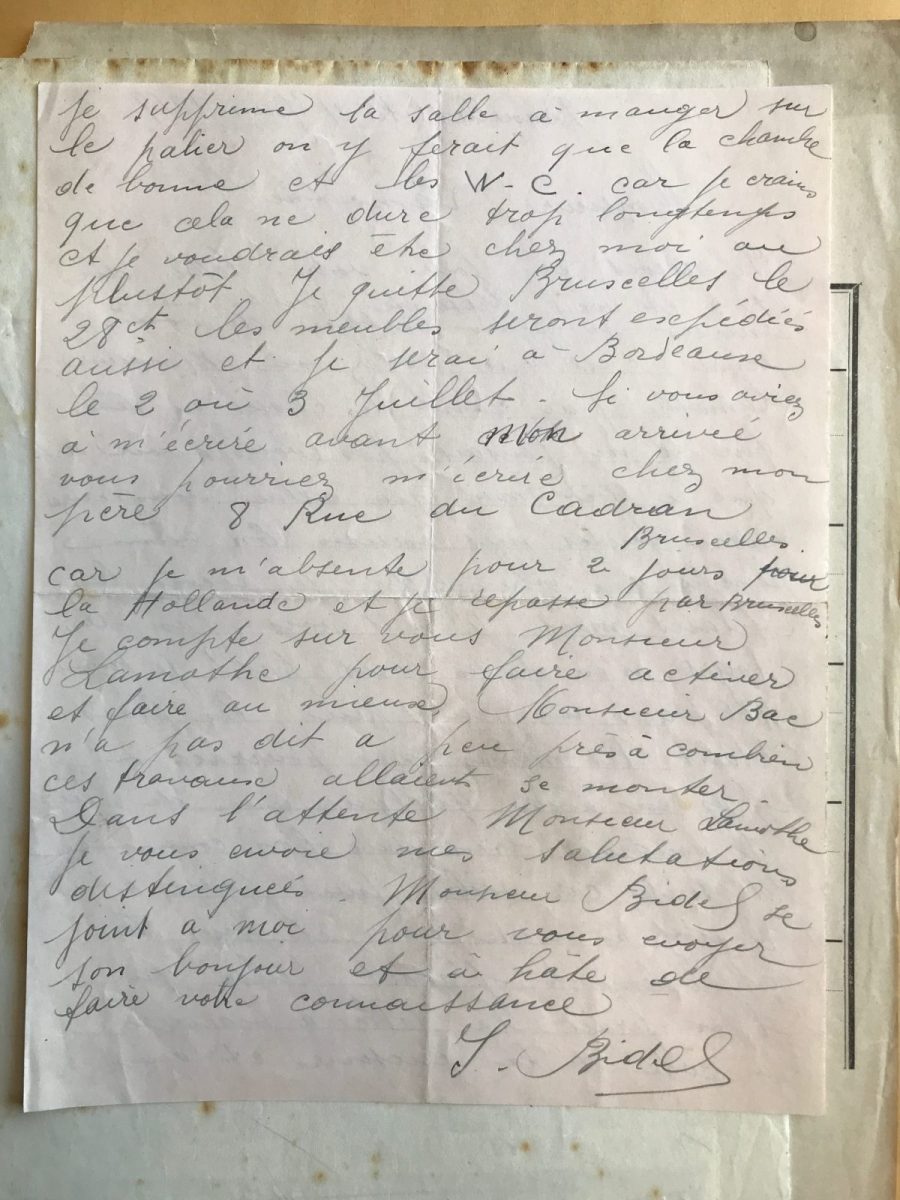 je supprime la salle à manger sur
le palier on y ferait que la chambre
de bonne et les W-C. car je crains
que cela ne dure trop longtemps
et je voudrais être chez moi au
plustôt Je quitte Bruxelles le
28ct les meubles seront expédiés
aussi et je serai à Bordeaux
le 2 où 3 Juillet. Si vous aviez
à m'écrire avant mon arrivée
vous pourriez m'écrire chez mon
père 8 Rue du Cadran
Bruxelles
car je m'absente pour 2 jours pour
la Hollande et je repasse par Bruxelles
Je compte sur vous Monsieur
Lamothe pour faire activer
et faire au mieux, Monsieur Bac
n'a pas dit a peu près à combien
ces travaux allaient se monter.
Dans l'attente Monsieur Lamothe
je vous envoie mes salutations
distinguées. Monsieur Bidel se
joint a moi pour vous envoyer
son bonjour et à hâte de
faire votre connaissance
S. Bidel